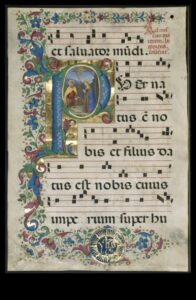 et saluator mūdi.
Puer na
tus ē no
bis et filius da
tus est nobis cuius
impe rium super hu